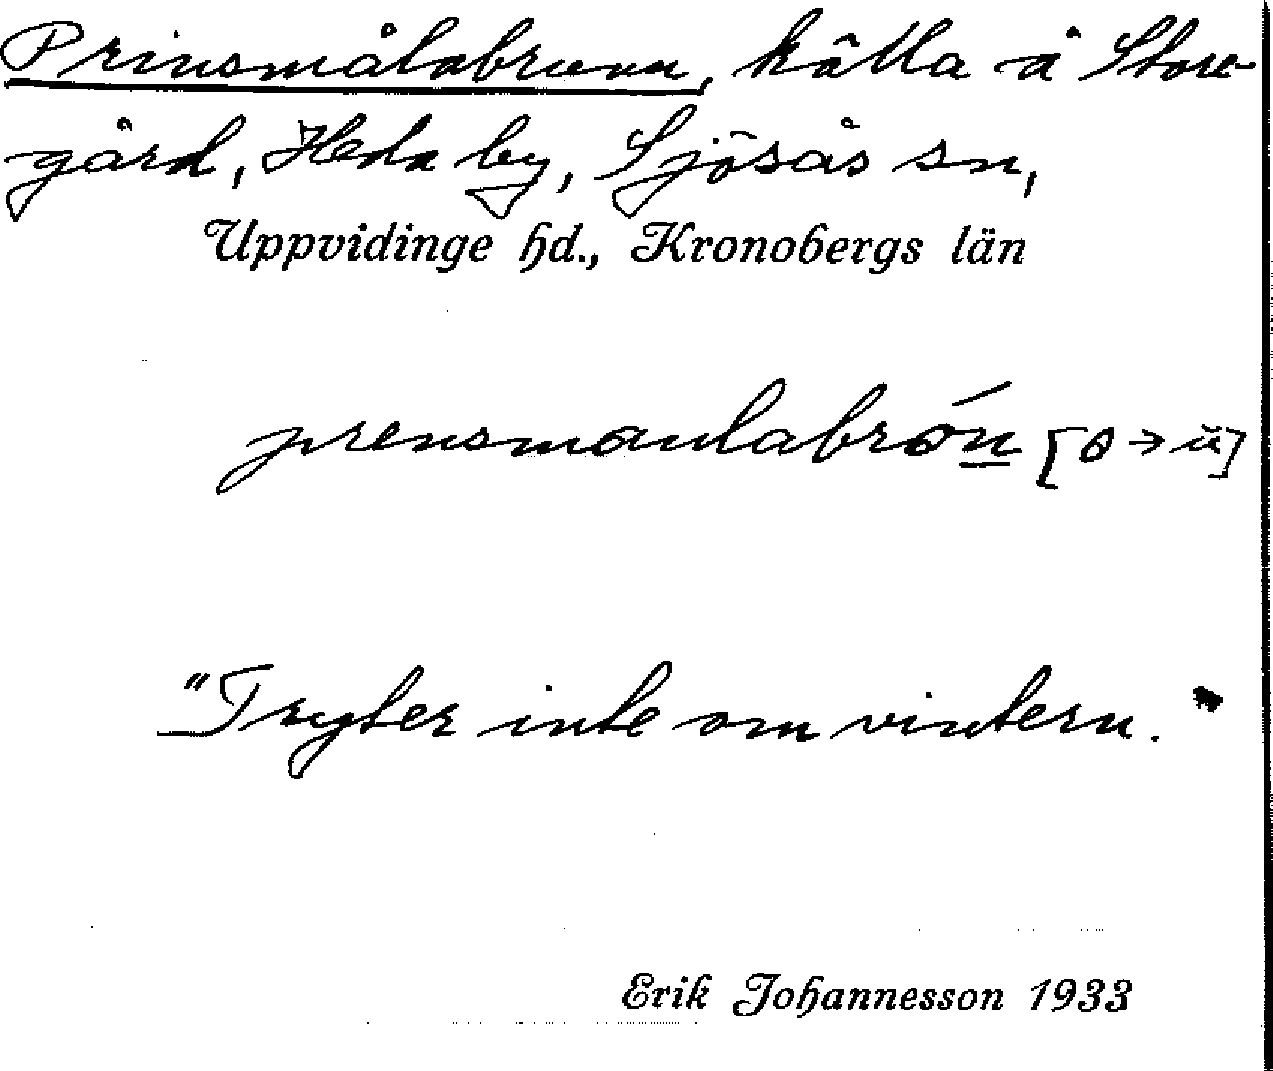 Prinsmålabrunn, källa å Store-
gård, Heda by, Sjösås sn,
Uppvidinge hd., Kronobergs län
prensmaulabrón [ó → ŭ]
"Tryter inte om vintern."
Erik Johannesson 1933